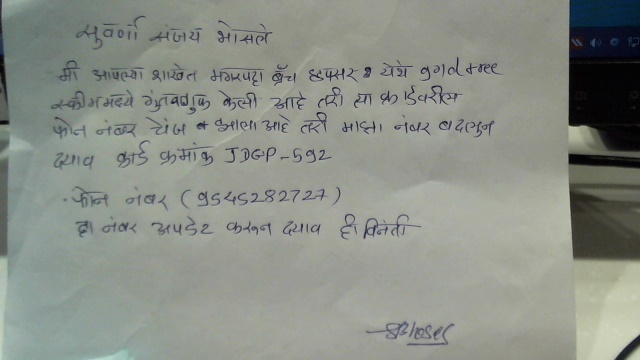 सुवर्णा संजय भोसले
मी आपल्या शाखेत मगरपट्टा ब्रॅंच हडपसर येथे gold tree
स्कीममध्ये गुंतवणुक केली आहे तरी त्या कार्डवरील
फोन नंबर चेंज झाला आहे तरी माझा नंबर बदलुन
दयाव कार्ड क्रमांक JDGP-592
फोन नंबर (9545282727)
हा नंबर अपडेट करून दयाव ही विनंती